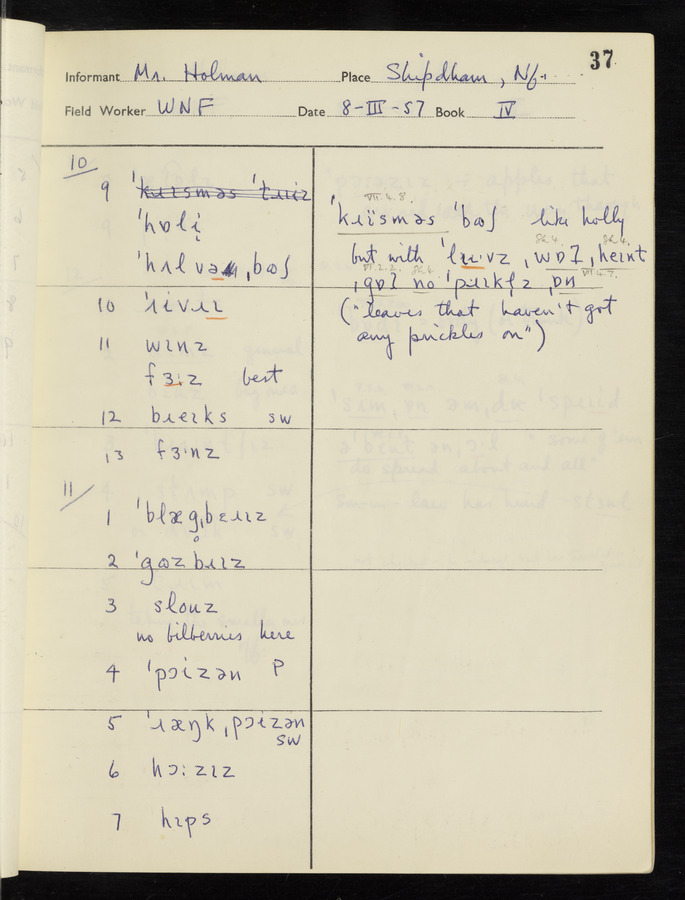 37
Informant Mr. Holman Place Shipdham, Nf.
Field Worker WNF Date 8-III-57 Book IV
10
9 ˈkɹɪsməs ˈtɹiːz
ˈhɒli̞
ˈhʌlvəɹ ˌbʊʃ
10
11 wɪnz
fɜːz best
12 bɹeɪks sw
13 fɜˑnz
11
1 ˈblæg̥ˌbɛɹɪz
2 ˈgʊzbɹɪz
3 slouz
no bilberries here
4 ˈpɔizən P
5 ˈɹæŋkˌpɔizən
sw
6 hɔːzɪz
7 hɪps
VII.4.8.
ˈkɹɪsməs ˈbʊʃ like holly
but with
("leaves that haven't got
any prickles on")